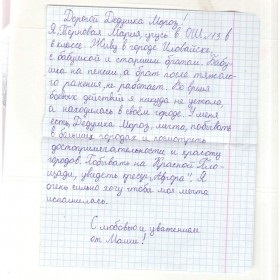 Дорогой Дедушка Мороз!
Я, Перковая Мария, учусь в ОШ №13 в
классе. Живу в городе Иловайске
с бабушкой и старшим братом. Бабу-
шка на пенсии, а брат после тяжело-
го ранения не работает. Во время
боевых действий я никуда не уезжала,
а находилась в своём городе. У меня
есть, Дедушка Мороз, мечта, побывать
в больших городах и посмотреть
достопримечательности и красоту
городов. Побывать на Красной Пло-
щади, увидеть крейсер „Аврора“. Я
очень сильно хочу чтобы моя мечта
исполнилась.
С любовью и уважением
от Маши!